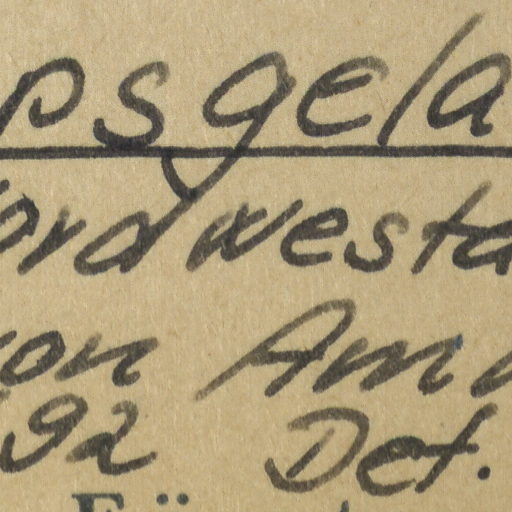 psgela
ordwesta
on Am
92 Det.
Fü